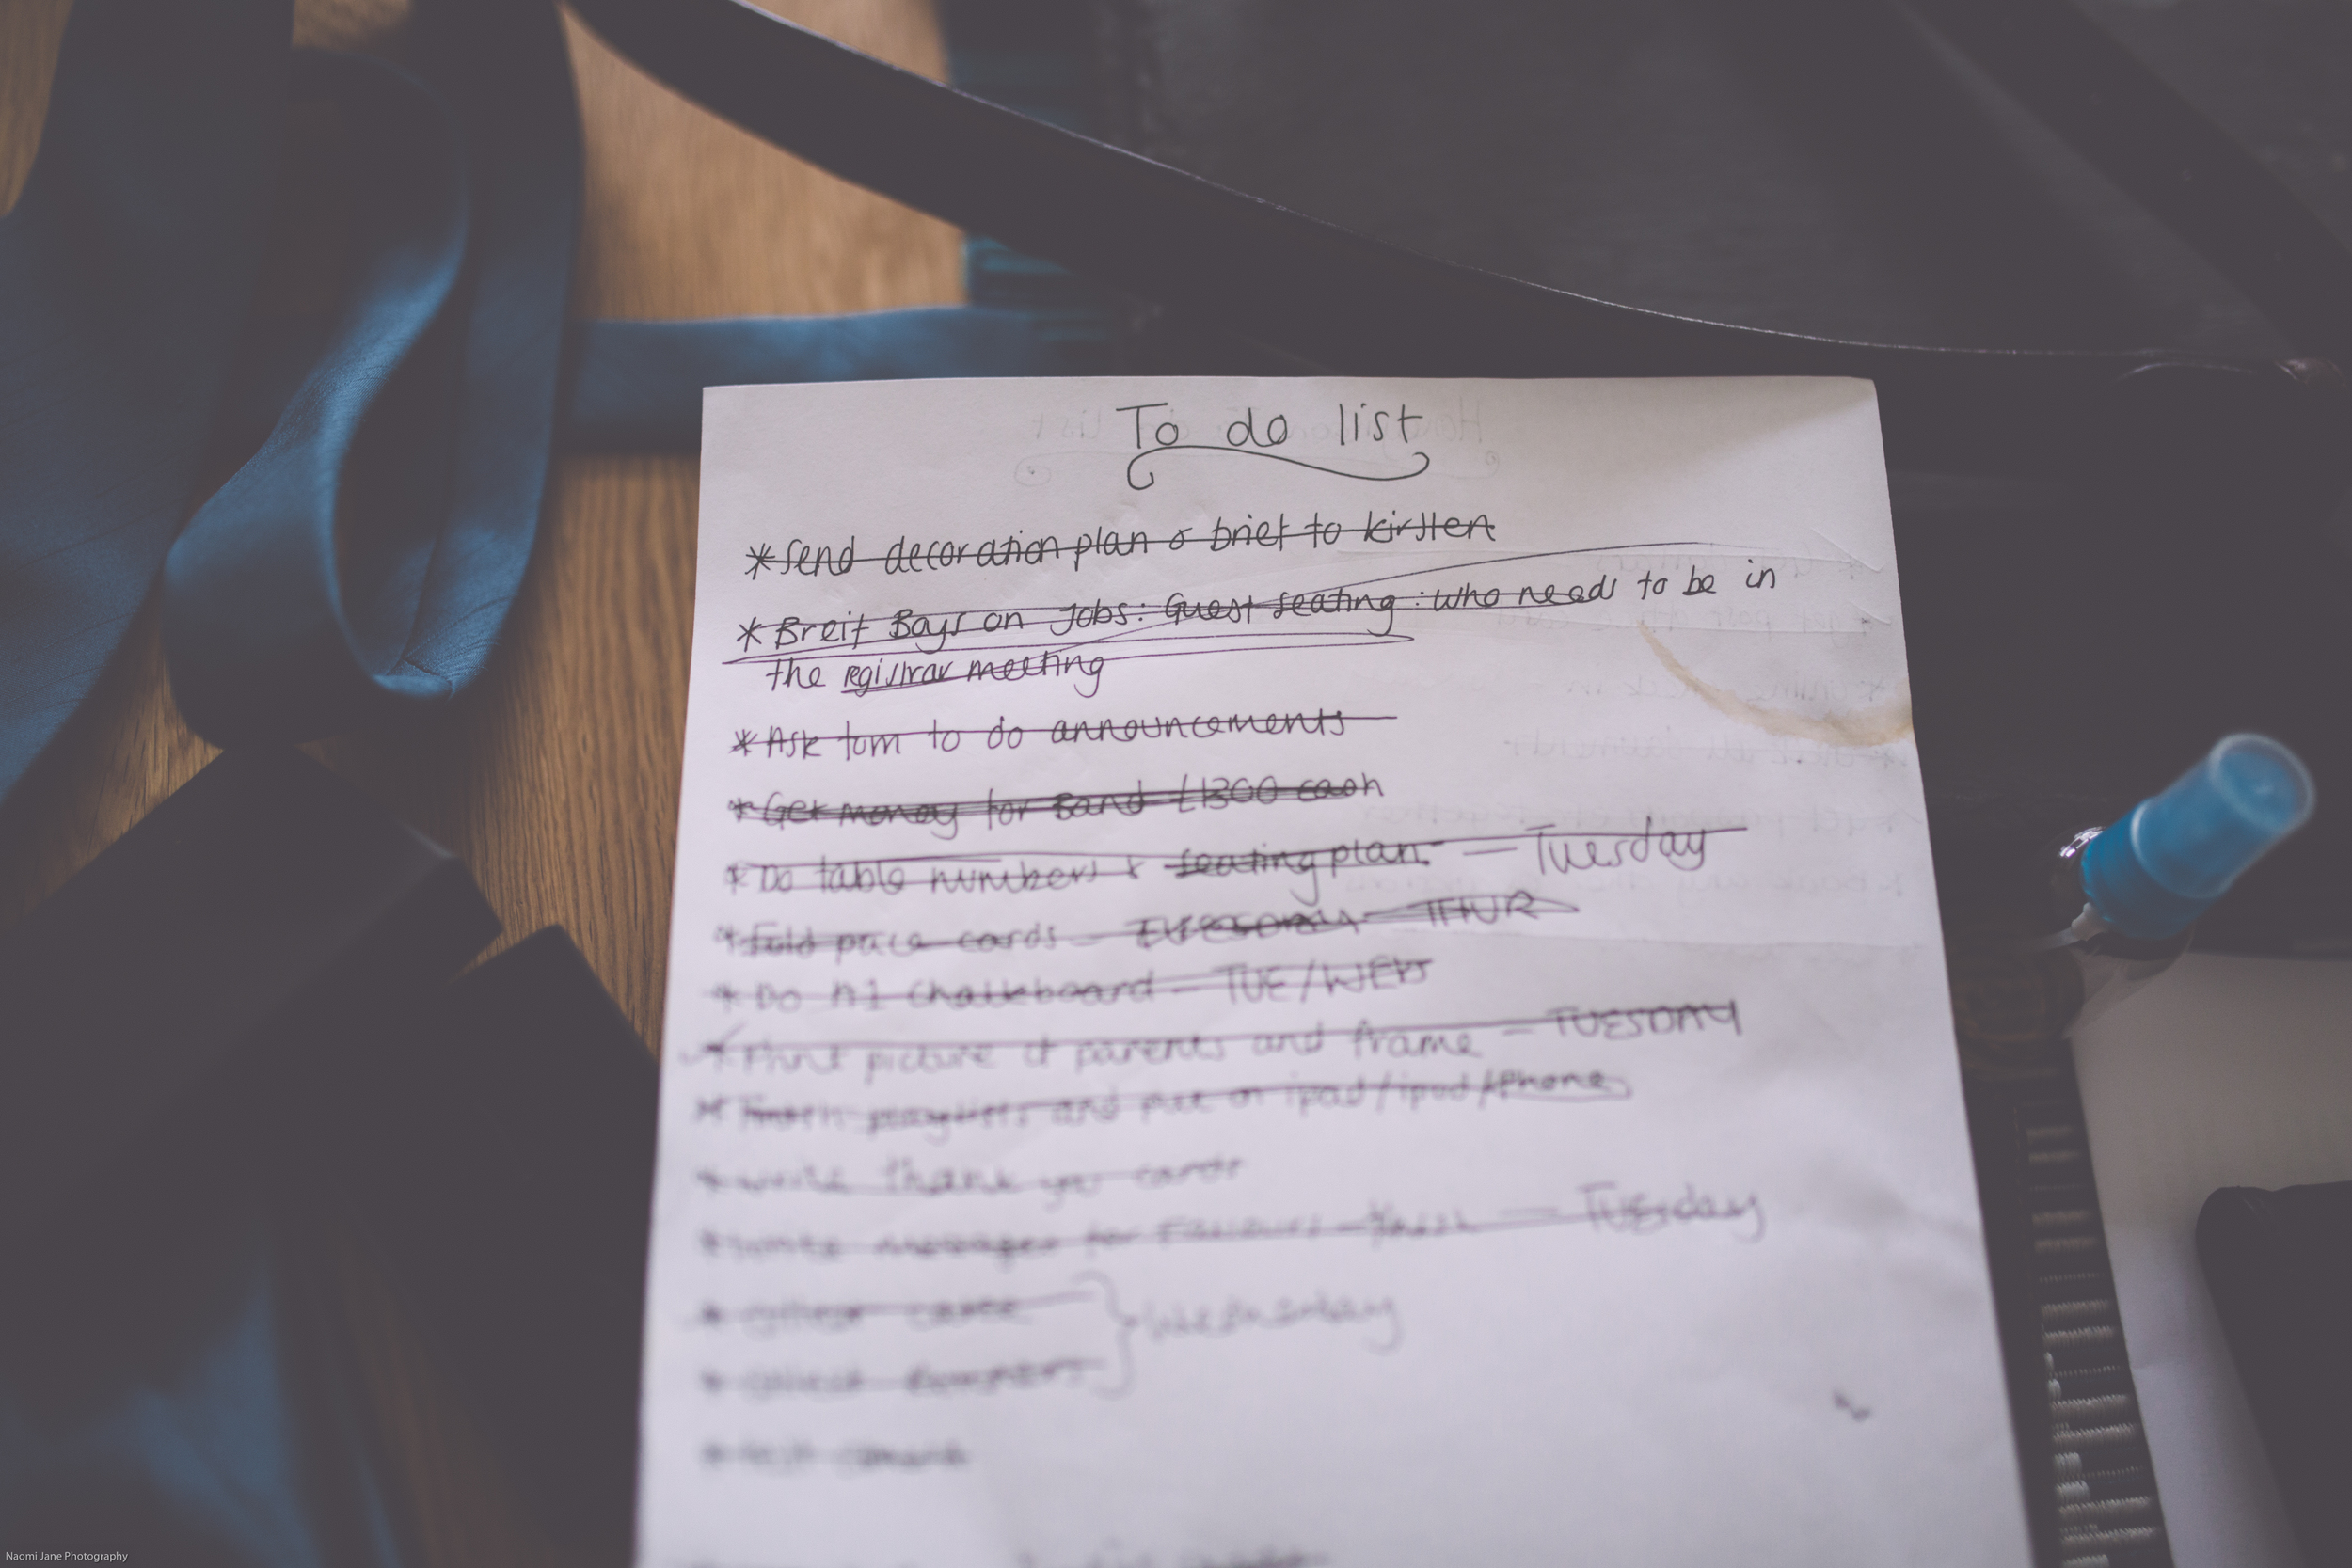 To do list
* Send decoration plan & brief to kirsten
* Breif Boys on Jobs: Guest seating: who needs to be in
the registrar meeting
* Ask tom to do announcements
* Get money for Band £1300 cash
* Do table numbers & seating plan. — Tuesday
* Fold place cards - THUR
* Do A1 Chalkboard - TUE/WEDS
* Print picture of parents and frame - TUESDAY
* Finish playlists and put on ipad/ipod/iPhone
* write thank you cards
* write messages for Favours — Tuesday
* Collect
Wednesday
* Collect
Naomi Jane Photography